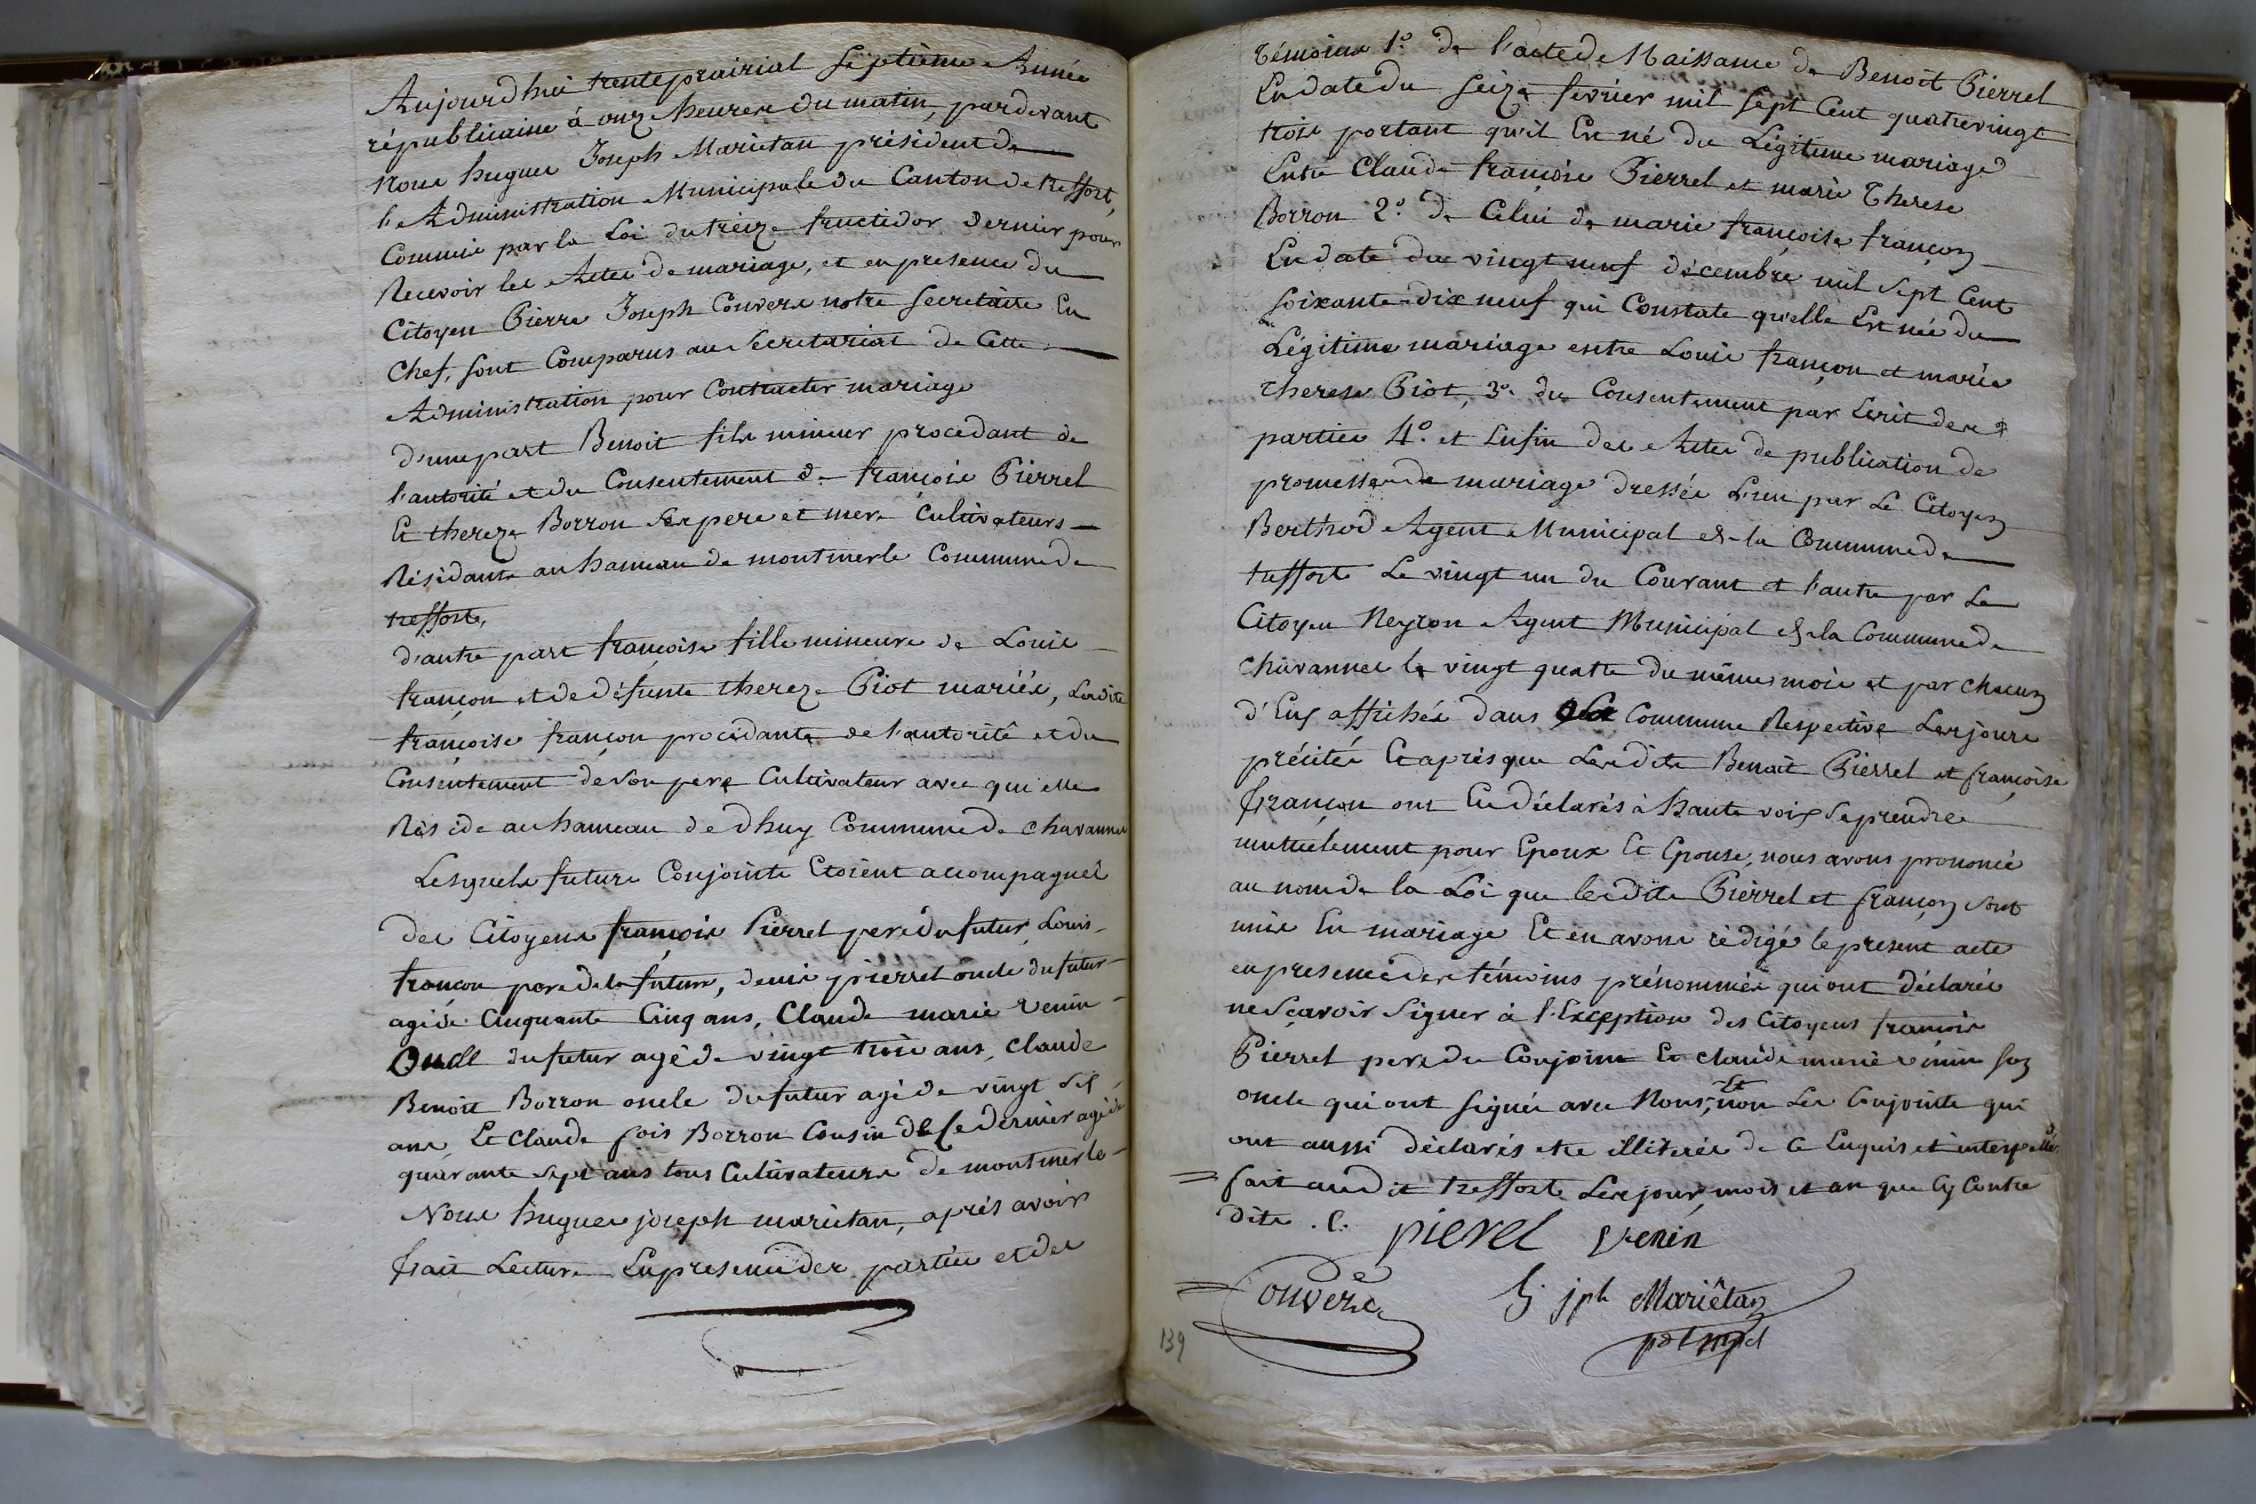 Aujourdhui trente prairial septieme Année
républicaine à onze heures du matin, pardevant
Nous hugues Joseph Mariétan président de
l'Administration Municipale du Canton de treffort,
Commis par la Loi du treize fructidor dernier pour
Recevoir les Actes de mariage, et en presence du
Citoyen Pierre Joseph Convers notre secretaire En
Chef, sont Comparus au Secretariat de Cette
Administration pour Contracter mariage
d'une part Benoit fils mineur procedant de
l'autorité et du Consentement de françois Pierrel
Et thereze Borron Ses pere et mere Cultivateurs
Résidants au hameau de montmerle Commune de
treffort,
d'autre part françoise fille mineure de Louis
françon et de défunte thereze Piot mariés, Ladite
françoise françon procédante de l'autorité et du
Consentement de son pere Cultivateur avec qui elle
Réside au hameau de dhuy Commune de Chavannes
Lesquels futurs Conjoints Etoient accompagnés
des Citoyens françois Pierrel pere du futur, Louis
françon pere de la future, denis pierrel oncle du futur
agé de Cinquante Cinq ans, Claude marie Venin
Oncle du futur agé de vingt trois ans, Claude
Benoit Borron oncle du futur agé de vingt six
ans, Et Claude fois Borron Cousin de Ce dernier agé de
quarante sept ans tous Cultivateurs de montmerle
Nous hugues joseph mariétan, après avoir
fait Lecture En presence des parties et des
témoins 1º. de l'acte de Naissance de Benoit Pierrel
En date du seize fevrier mil sept Cent quatrevingt
trois portant qu'il Est né du Légitime mariage
Entre Claude françois Pierrel et marie Therese
Borron 2º. de Celui de marie françoise françon
En date du vingt neuf décembre mil sept Cent
soixante-dix neuf qui Constate qu'elle Est née du
Légitime mariage entre Louis françon et marie
therese Piot, 3º. du Consentement par Ecrit des
parties 4º. et Enfin des Actes de publication de
promesses de mariage dressés L'un par Le Citoyen
Berthod Agent Municipal de la Commune de
treffort Le vingt un du Courant et l'autre par Le
Citoyen Neyron Agent Municipal de la Commune de
Chavannes le vingt quatre du même mois et par chacun
d'Eux affichés dans La Commune Respective Les jours
précités Et après que Lesdits Benoit Pierrel et françoise
françon ont Eu déclarés à haute voix Se prendre
mutuelement pour Epoux Et Epouse, nous avons prononcé
au nom de la Loi que lesdits Pierrel et françon sont
unis En mariage Et en avons rédigé le present acte
en presence des témoins prénommés qui ont déclarés
ne Sçavoir Signer à l'Exception des Citoyens françois
Pierrel pere du Conjoint Et Claude marie venin son
oncle qui ont signés avec Nous, Et non Les Conjoints qui
ont aussi déclarés etre illiterés de Ce Enquis et interpellés
fait audit treffort Les jour, mois et an que Cy Contre
dits . C. pierel Venin
Convers h jph Mariêtan
pdt mpal
139